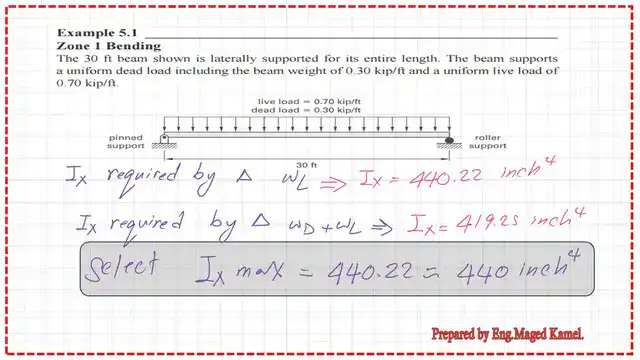 Example 5.1
Zone 1 Bending
The 30 ft beam shown is laterally supported for its entire length. The beam supports
a uniform dead load including the beam weight of 0.30 kip/ft and a uniform live load of
0.70 kip/ft.
live load = 0.70 kip/ft
dead load = 0.30 kip/ft
pinned
support
roller
support
30 ft
Ix required by Δ WL ⇒ Ix = 440.22 inch⁴
Ix required by Δ WD+WL ⇒ Ix = 419.25 inch⁴
Select Ix max = 440.22 ≈ 440 inch⁴
Prepared by Eng.Maged Kamel.